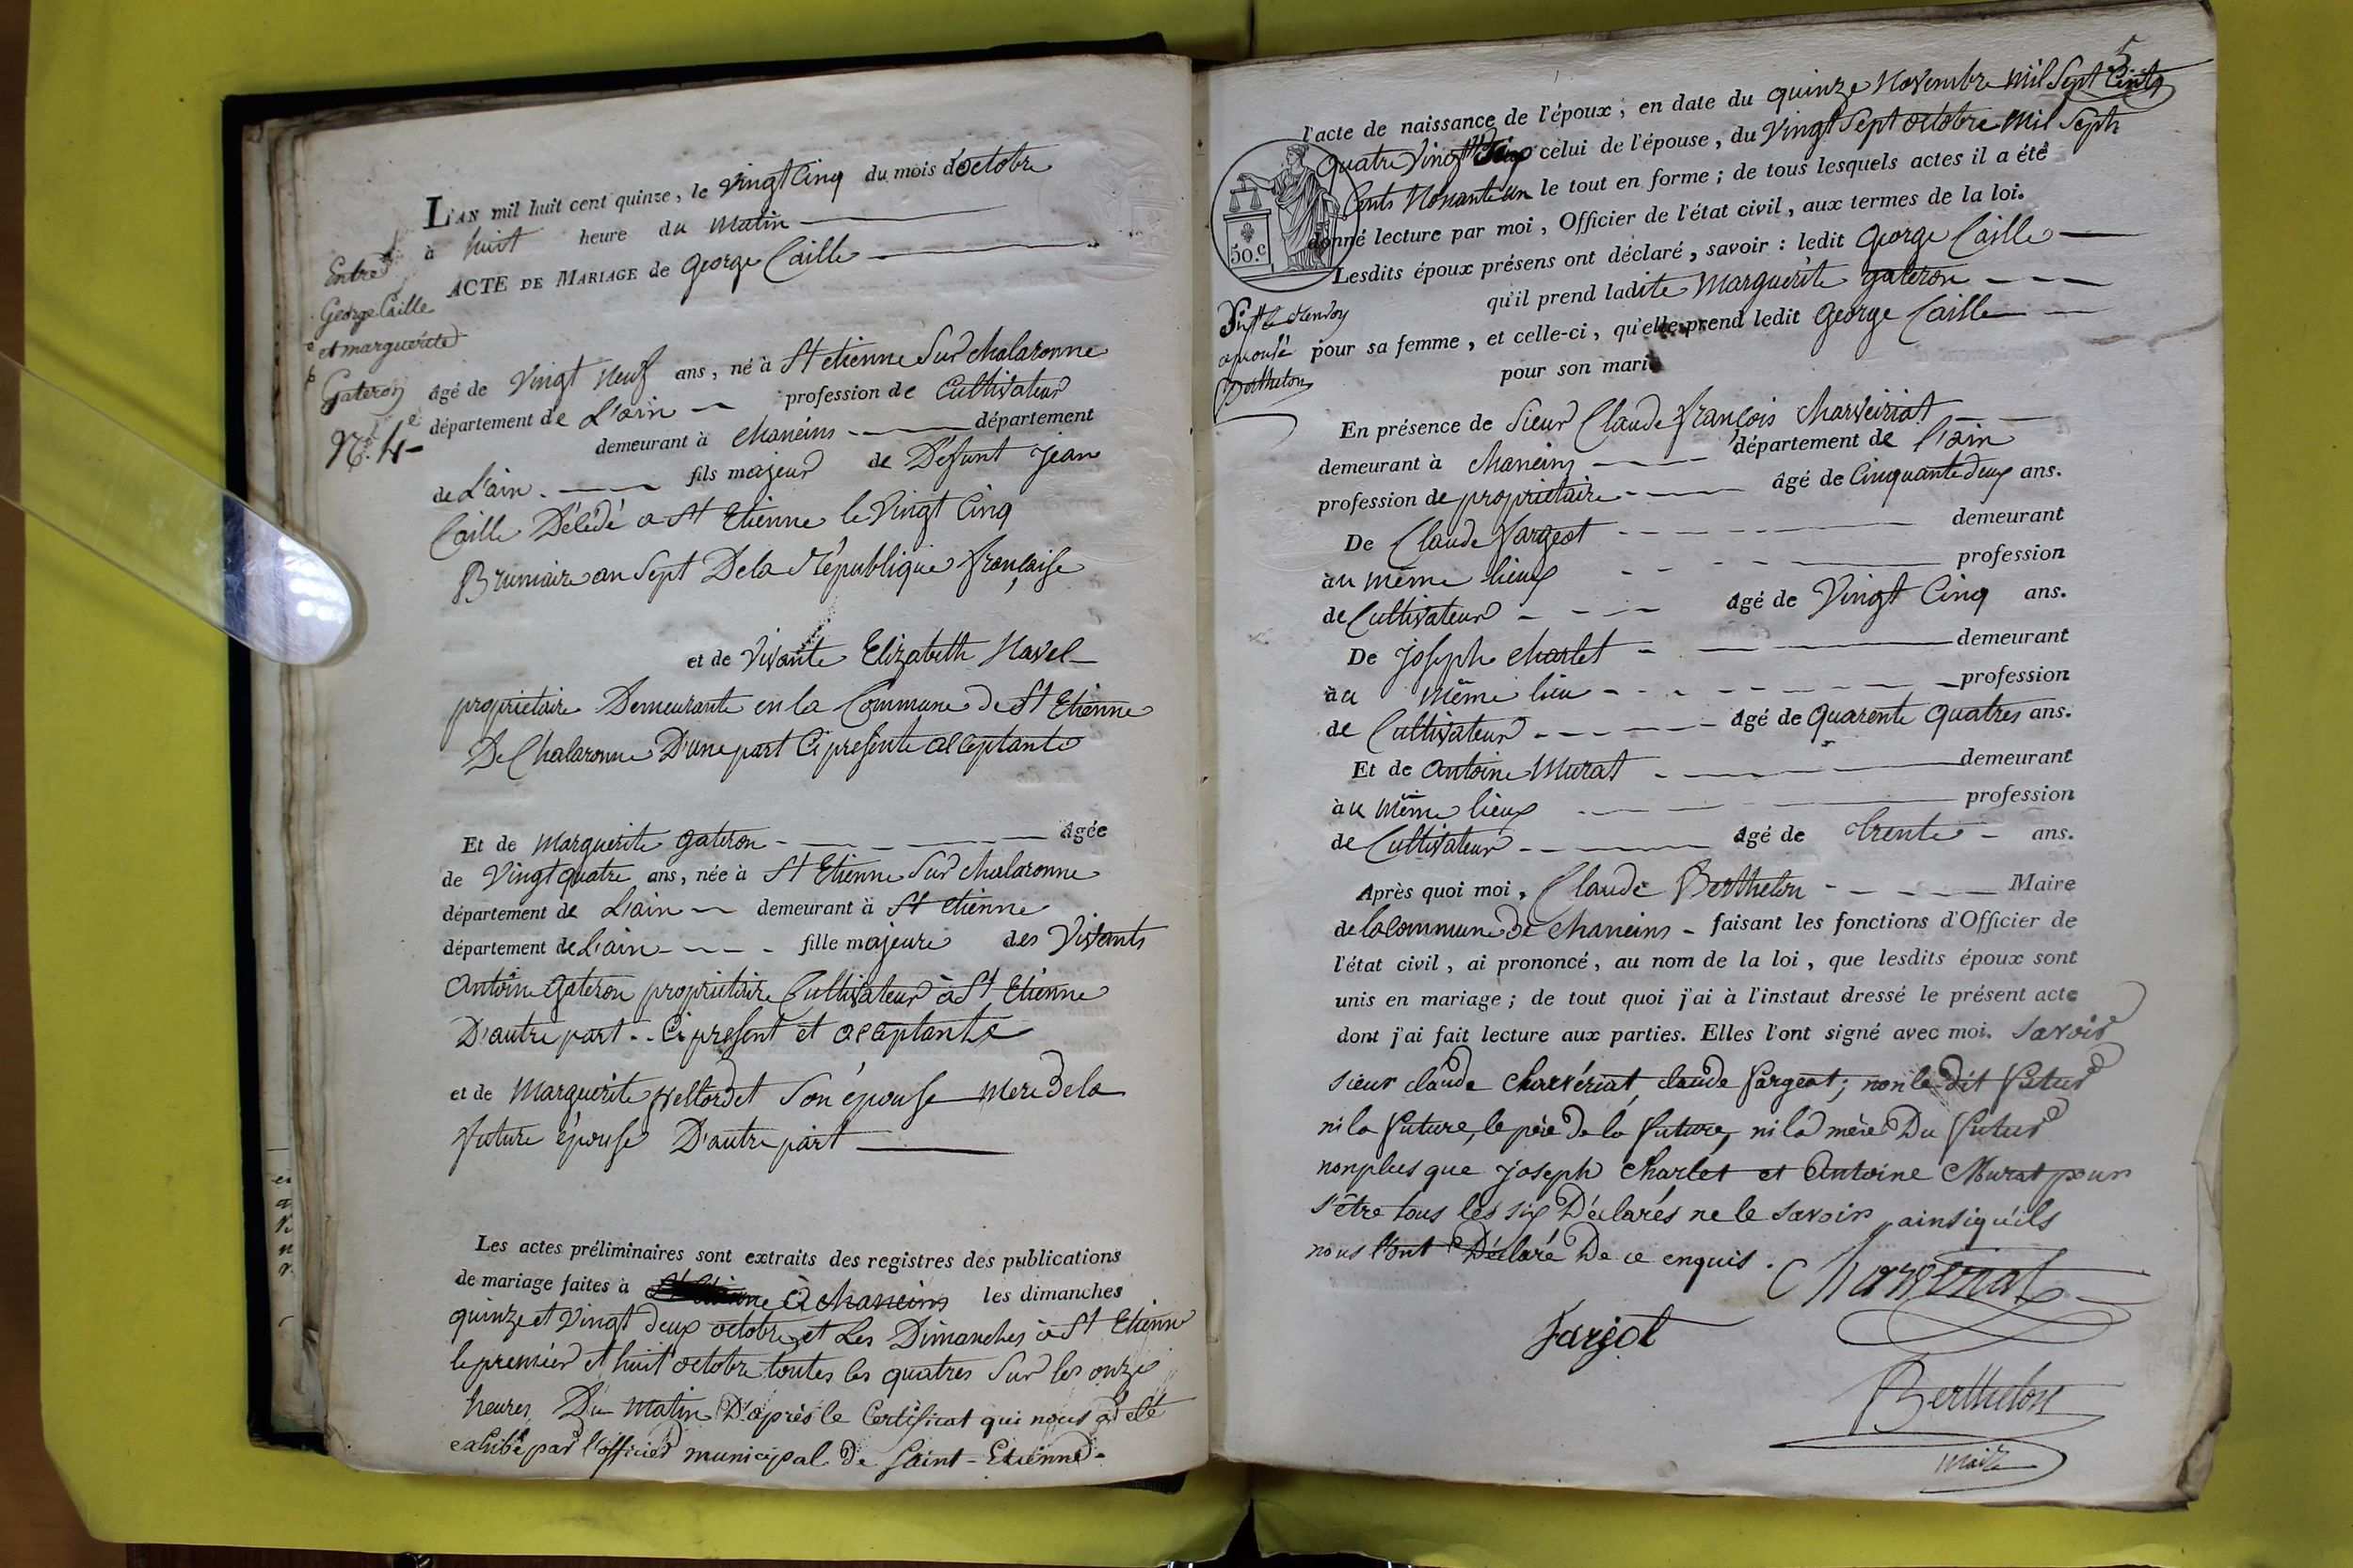 L'AN mil huit cent quinze, le Vingt Cinq du mois d'octobre
à huit heure du Matin
ACTE DE MARIAGE de George Caille
Entre
George Caille
et marguerite
Gateron
N.º 4
âgé de Vingt Neuf ans, né à St etienne Sur chalaronne
département de L'ain profession de Cultivateur
demeurant à chaneins département
de L'ain. fils majeur de Défunt Jean
Caille Décédé a St Etienne le Vingt Cinq
Brumaire an Sept De la République française
et de Vivante Elizabeth Navel
proprietaire Demeurante en la Commune de St Etienne
De Chalaronne D'une part Ci presente acceptante
Et de Marguerite gateron âgée
de Vingt quatre ans, née à St Etienne Sur chalaronne
département de L'ain demeurant à St etienne
département de L'ain fille majeure des Vivants
Antoine Gateron proprietaire Cultivateur à St Etienne
D'autre part.. Ci present et acceptante
et de Marguerite Son épouse mere de la
future épouse D'autre part
Les actes préliminaires sont extraits des registres des publications
de mariage faites à St Etienne à chaneins les dimanches
quinze et Vingt deux octobre et Les Dimanches à St Etienne
le premier et huit octobre toutes les quatres Sur les onze
heures Du Matin D'après le Certificat qui nous a été
exhibé par l'officier municipal de Saint-Etienne.
5
l'acte de naissance de l'époux ; en date du quinze Novembre mil Sept Cents
quatre Vingt celui de l'épouse, du Vingt Sept octobre Mil Sept
Cents Nonante un le tout en forme ; de tous lesquels actes il a été
donné lecture par moi, Officier de l'état civil, aux termes de la loi.
50.c
Lesdits époux présens ont déclaré, savoir : ledit George Caille
qu'il prend ladite Marguerite gateron
pour sa femme, et celle-ci, qu'elle prend ledit George Caille
pour son mari
approuvé
Berthelon
En présence de Sieur Claude françois Charveiriat
demeurant à chaneins département de l'ain
profession de proprietaire âgé de Cinquante deux ans.
De Claude fargeot demeurant
au même lieux profession
de Cultivateur âgé de Vingt Cinq ans.
De Joseph charlet demeurant
au même lieu profession
de Cultivateur âgé de quarente quatres ans.
Et de Antoine Murat demeurant
au même lieux profession
de Cultivateur âgé de trente ans.
Après quoi moi, Claude Berthelon Maire
de la commune de chaneins faisant les fonctions d'Officier de
l'état civil, ai prononcé, au nom de la loi, que lesdits époux sont
unis en mariage ; de tout quoi j'ai à l'instant dressé le présent acte
dont j'ai fait lecture aux parties. Elles l'ont signé avec moi. Savoir
sieur claude charvériat, claude fargeot ; non le dit futur
ni la future, le père de la future, ni la mère Du futur
non plus que joseph Charlet et Antoine Murat pour
s'être tous les six Déclarés ne le savoir, ainsi qu'ils
nous l'ont Déclaré De ce enquis.
Charveriat
farjot
Berthelon
maire